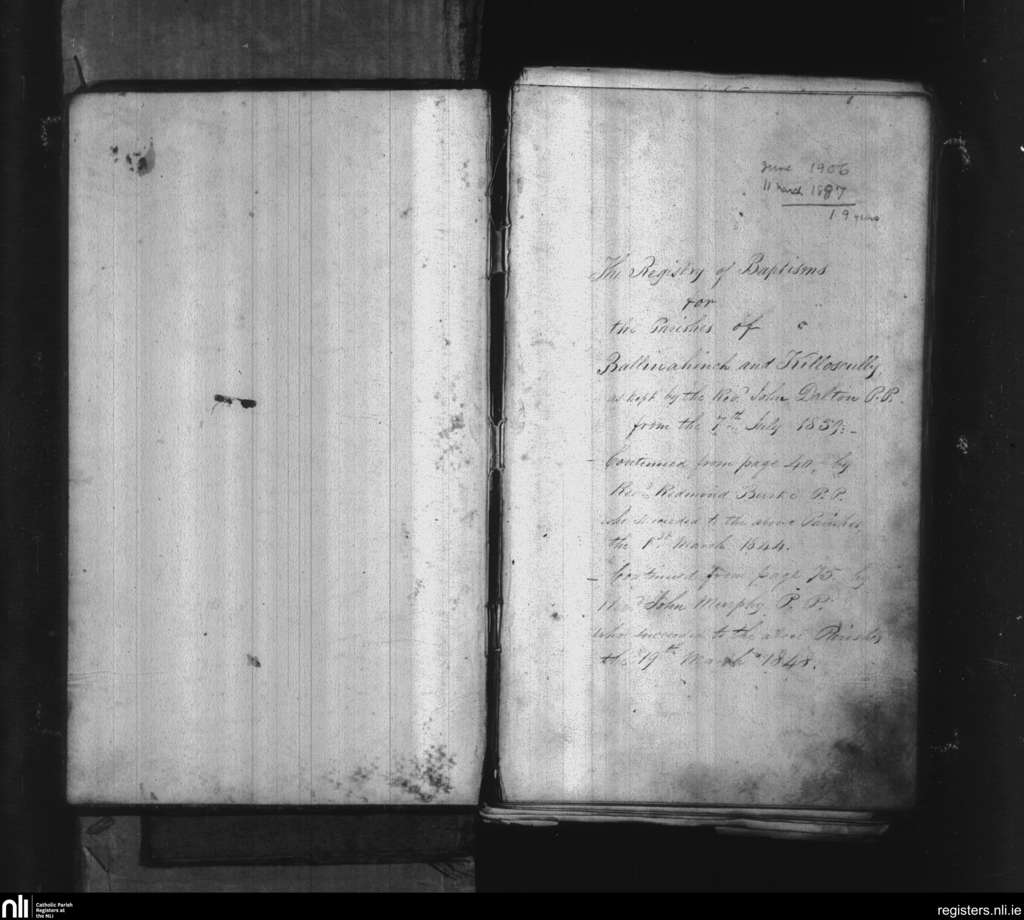 June 1906
11 March 1887
19 years
The Registry of Baptisms
for
the Parishes of
Ballinahinch and Killoscully,
as kept by the Revd. John Dalton P.P.
from the 7th July 1839;-
- Continued from page 40, by
Revd. Redmond Burke P.P.
who succeeded to the above Parishes,
the 1st March 1844.
- Continued from page 75 by
Revd. John Murphy P.P.
who succeeded to the above Parishes
the 19th March 1848.
nli
Catholic Parish
Registers at
the NLI
registers.nli.ie